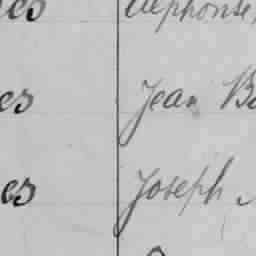 es Alphonse,
es Jean Ba
es Joseph